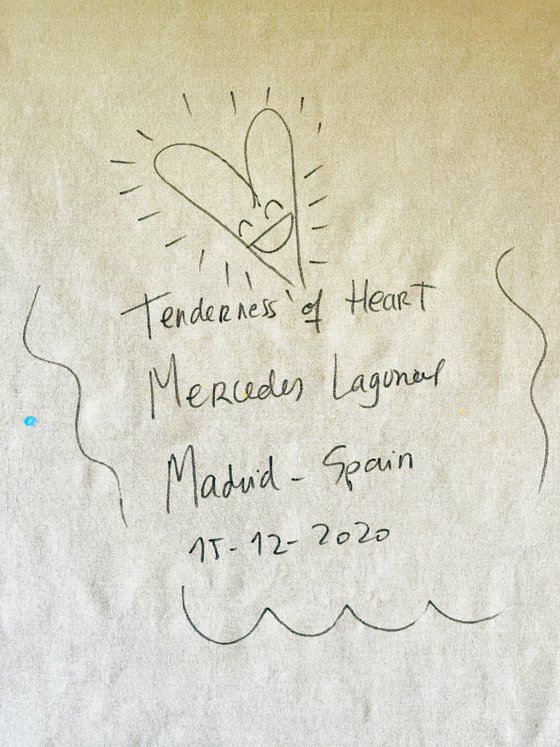 Tenderness of Heart
Mercedes Lagunas
Madrid - Spain
15-12-2020